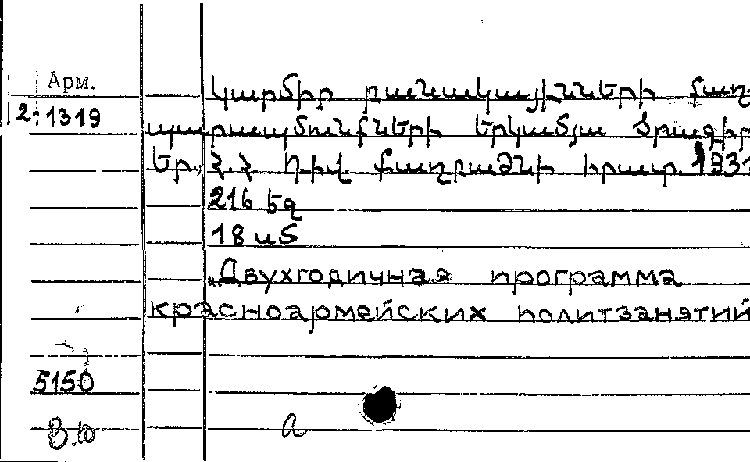 Арм.
Կարմիր բանակայինների քաղ
2-1319
պարապմունքների երկամյա ծրագիր
Եր., Հ.Հ. դիվ քաղբաժնի հրատ. 1931
216 էջ
18 սմ
„Двухгодичная программа
красноармейских политзанятий
5150
В.Ю
а